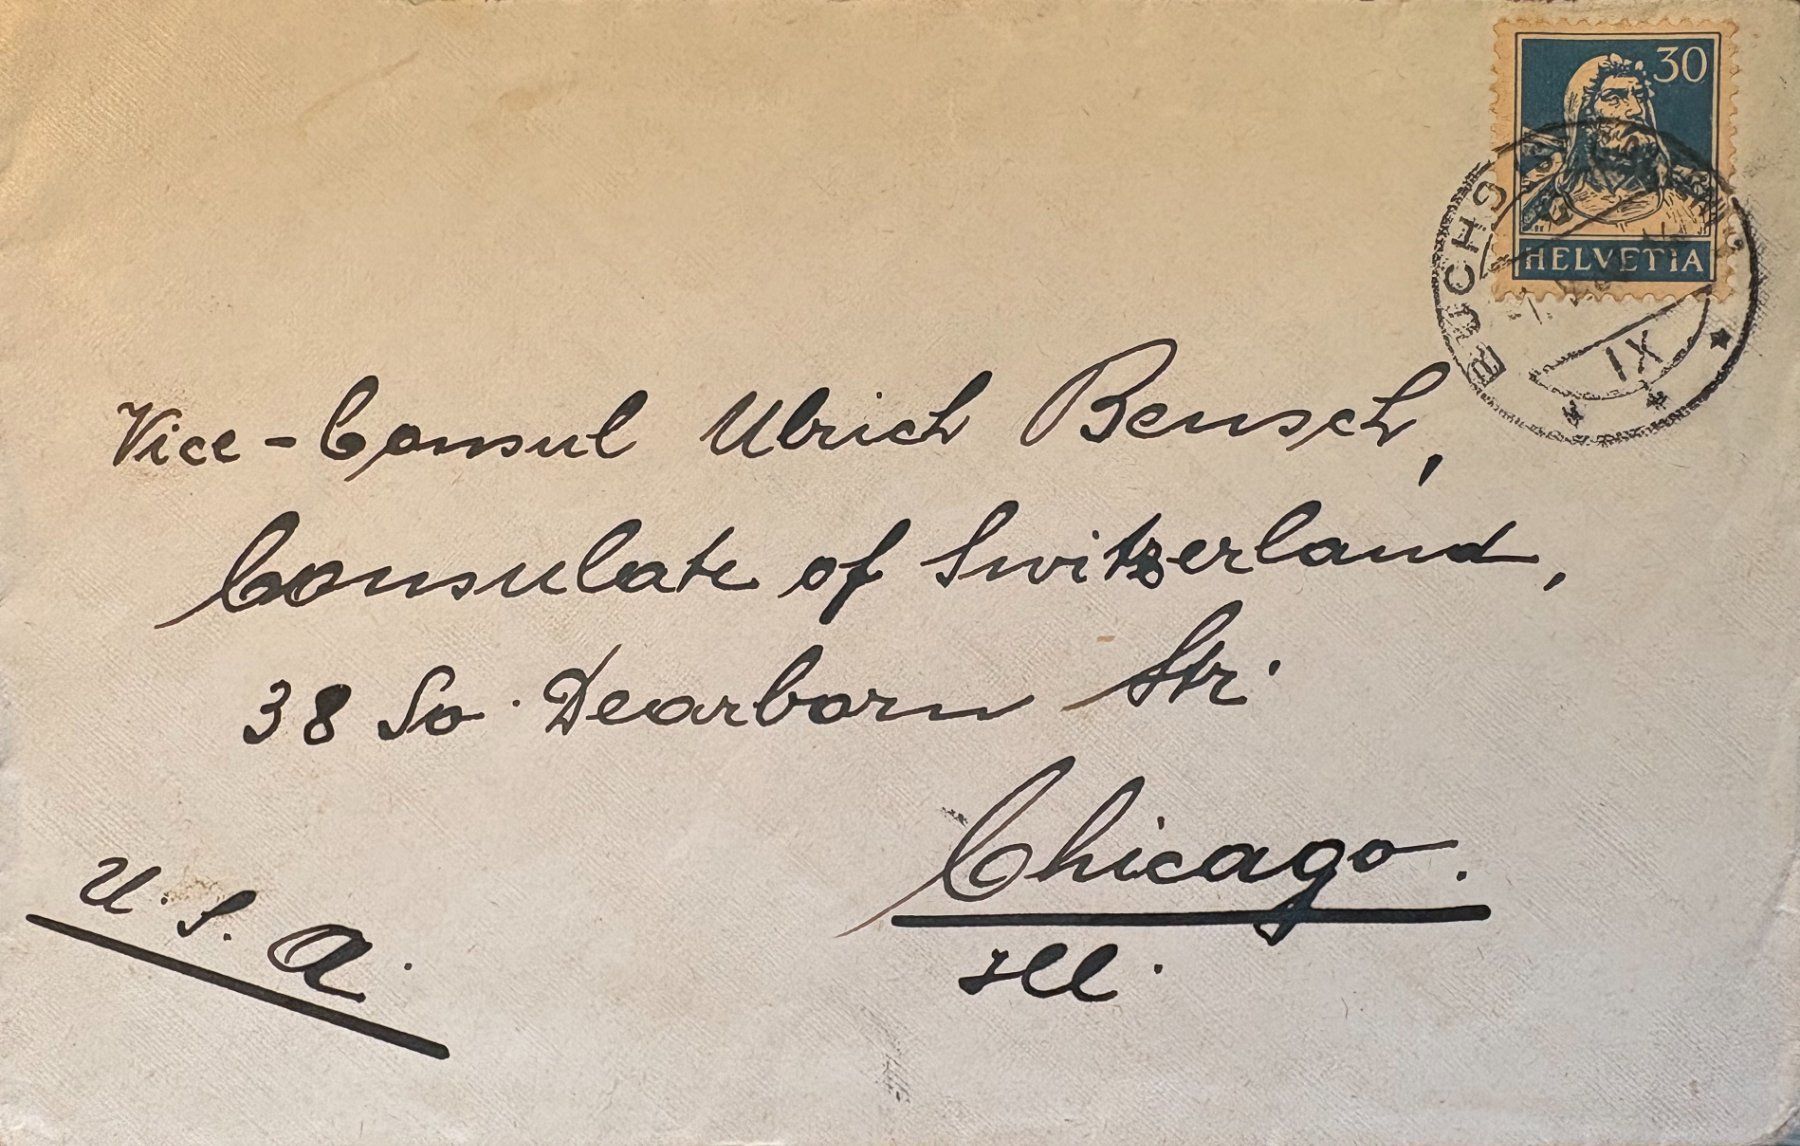 30
HELVETIA
BUCHS
IX
Vice-Consul Ulrich Bensch,
Consulate of Switzerland,
38 So. Dearborn Str.
Chicago.
Ill.
U.S.A.